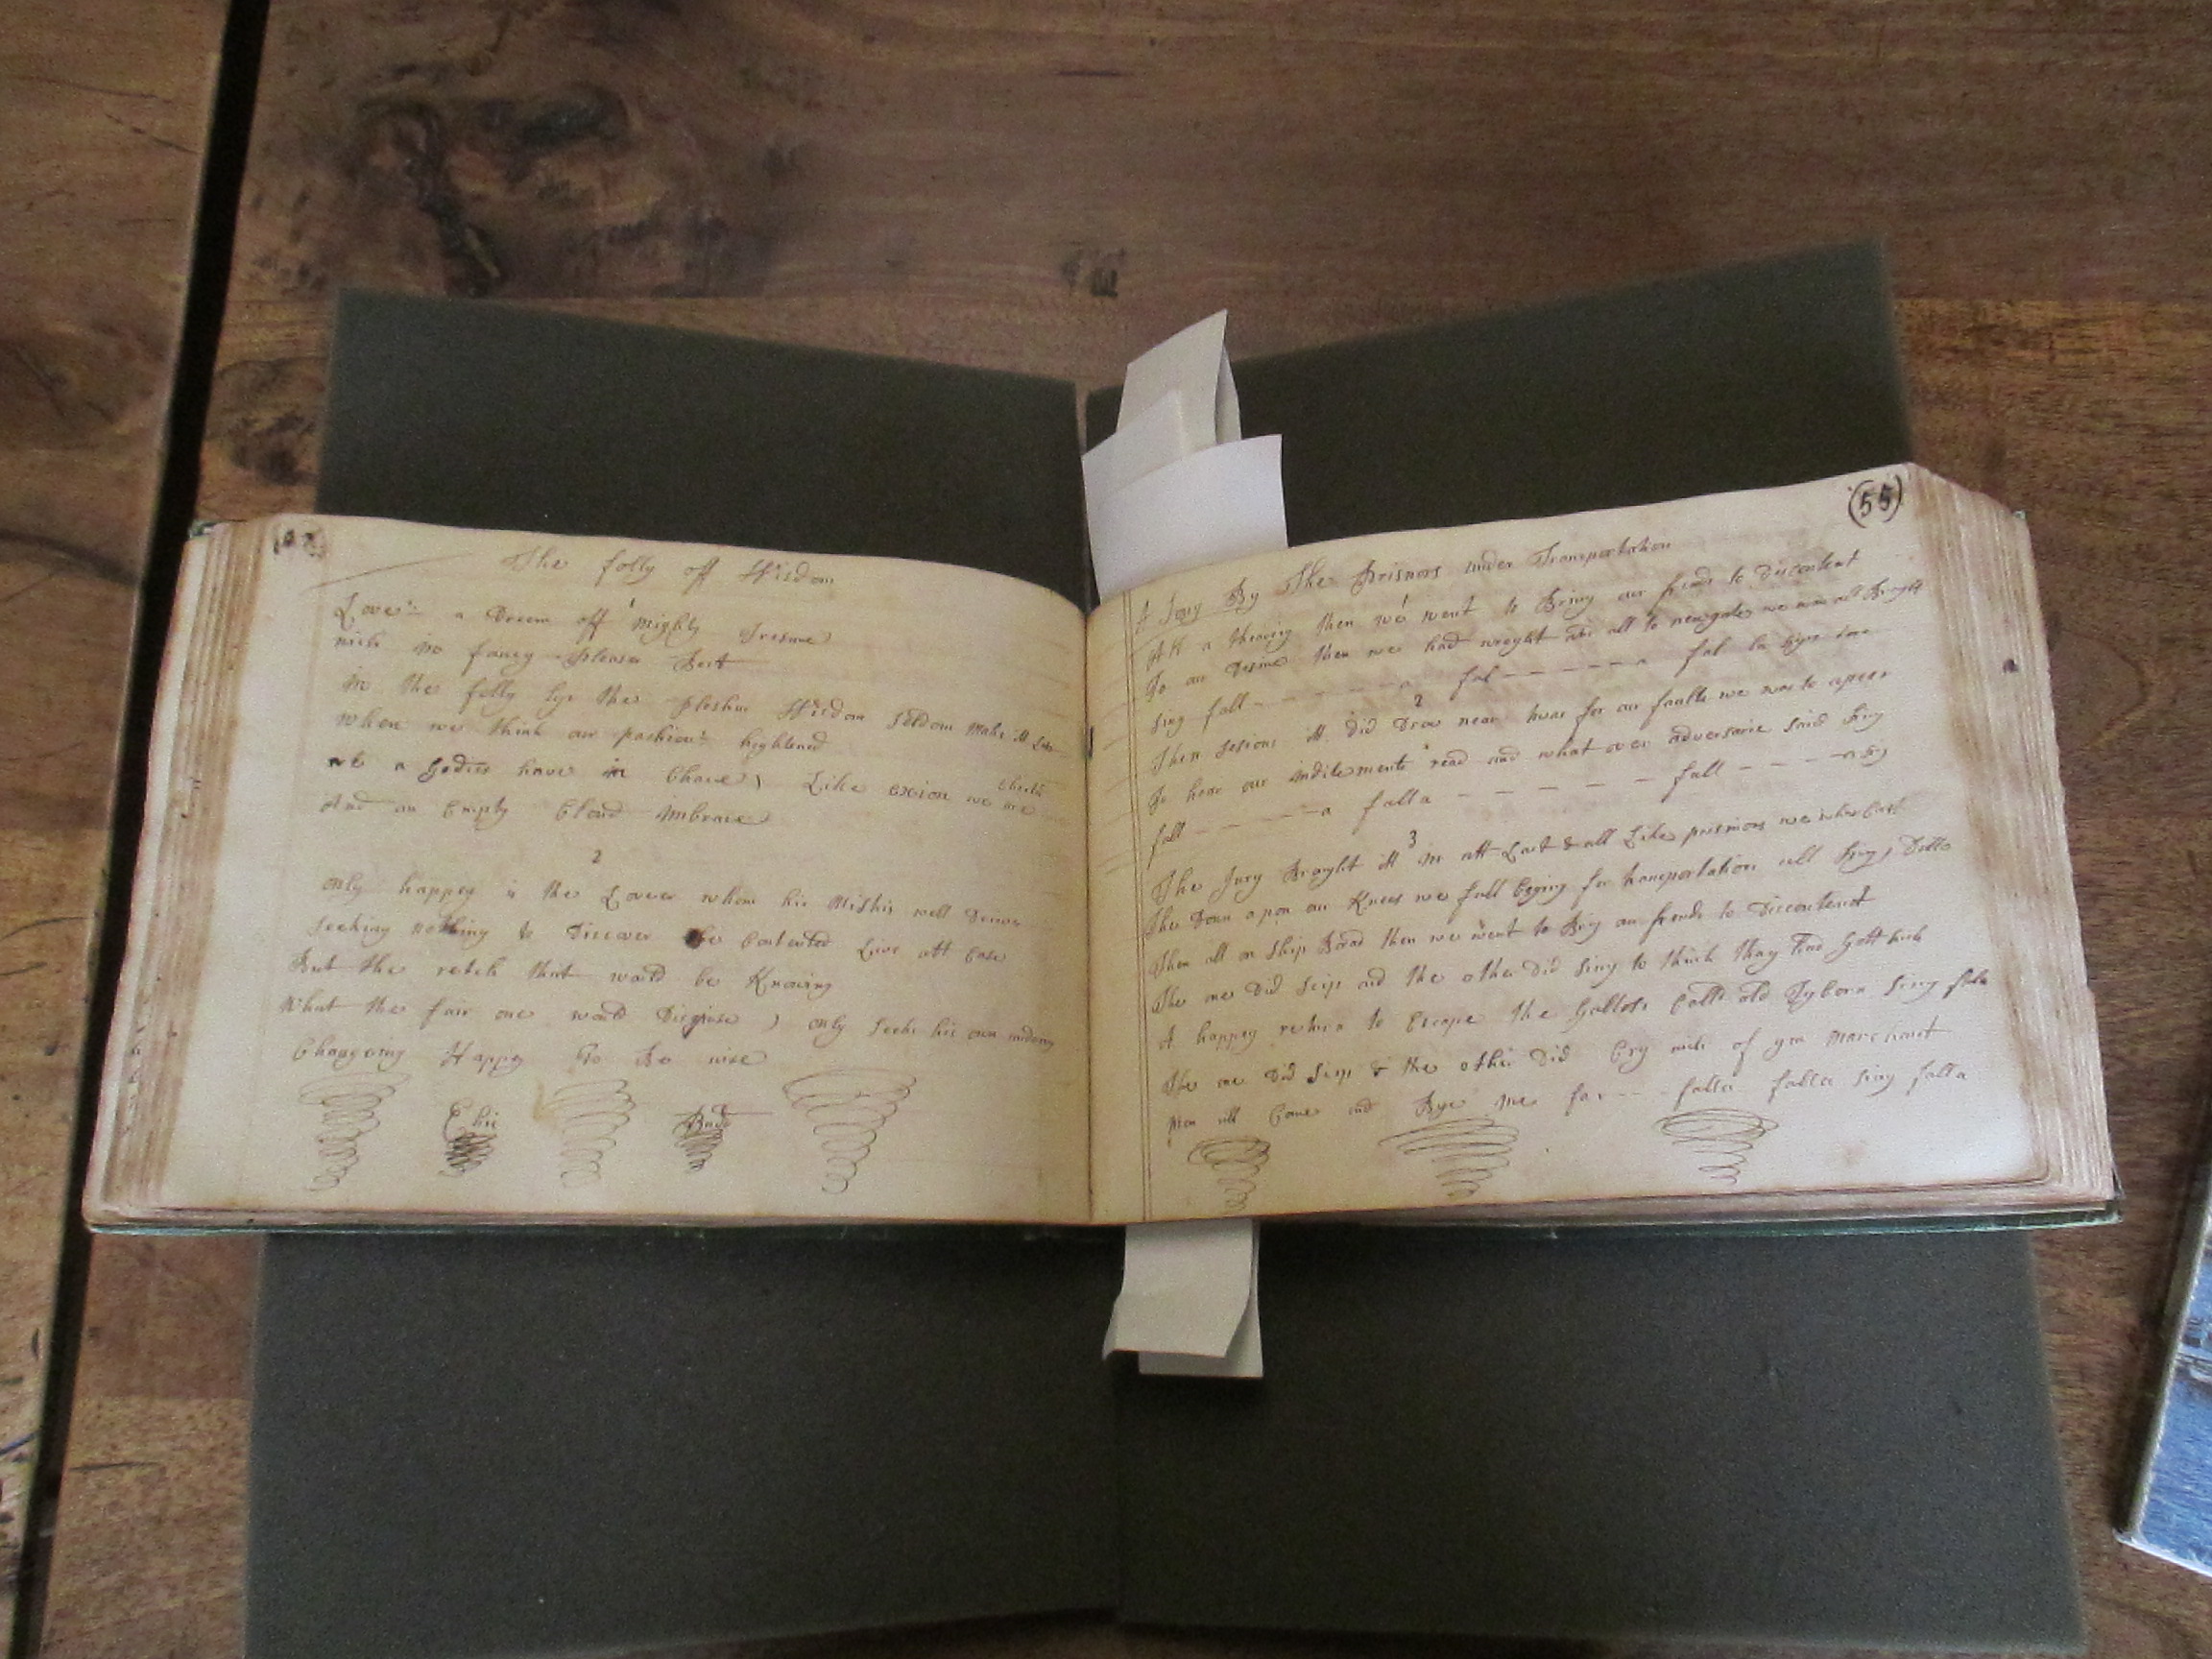 The folly off Wisdom
1
Love's a Dream off mighty Tresure
wich in fancy please Best
in the folly lys the pleshur Wisdom Seldom Make it
when we think our pashion's hightened
a Godies have in Chace Like exion we are
cheeth
And an Empty Cloud imbrace
2
only happey is the Lover whom his Mishis well
Seeking nothing to Discover Contented Live att Ease
But the retch that would be Knowing
What the fair one would Disguise only Seeks his own
Happy to Be wise
End
(55)
A Song By The Prisnors under Transportation
1
Att a theaving then we went to Bring our frends to Discontent
To our Desire then we had wroyght all to newgate we ware all Broyght
Sing fall - - - - - a fal - - - - - a fal la
2
Then Sesions it did Drow near for our faults we was to apear
To hear our inditements read and what over adversarie Said Sing
fall - - - - - a falla - - - - - fall - - - - a Sing
3
The Jury Broyght it in att Last & all Like prisnors we
The Down apon our Knees we fall Beging for transportation all Sing Ditto
Then all on Ship Board then we went to Bring our frends to Discontent
The one Did Scip and the other Did Sing to think thay had Gott
A happey return to Escape the Gallos Calld old Tyborn Sing
The one Did Scip & the other Did Cry wich of you Marchant
Men will Come and Bye me fa - - - falla falla Sing falla